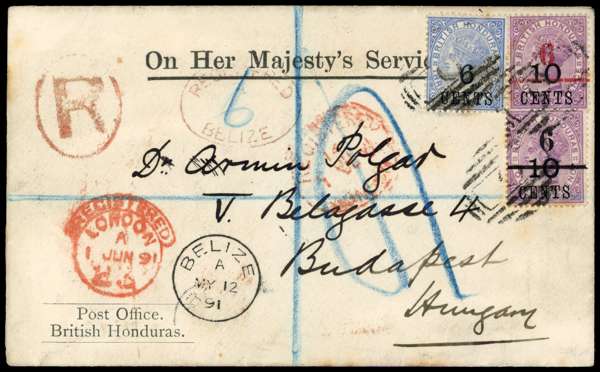 On Her Majesty's Servic
R
REGISTERED
6
BELIZE
BRITISH HONDURAS
6
CENTS
BRITISH HONDURAS
6
10
CENTS
6
10
CENTS
Dr Armin Polgar
V. Belagasse 4
Budapest
Hungary
REGISTERED
LONDON
A
1 JUN 91
BELIZE
A
MY 12
91
Post Office.
British Honduras.